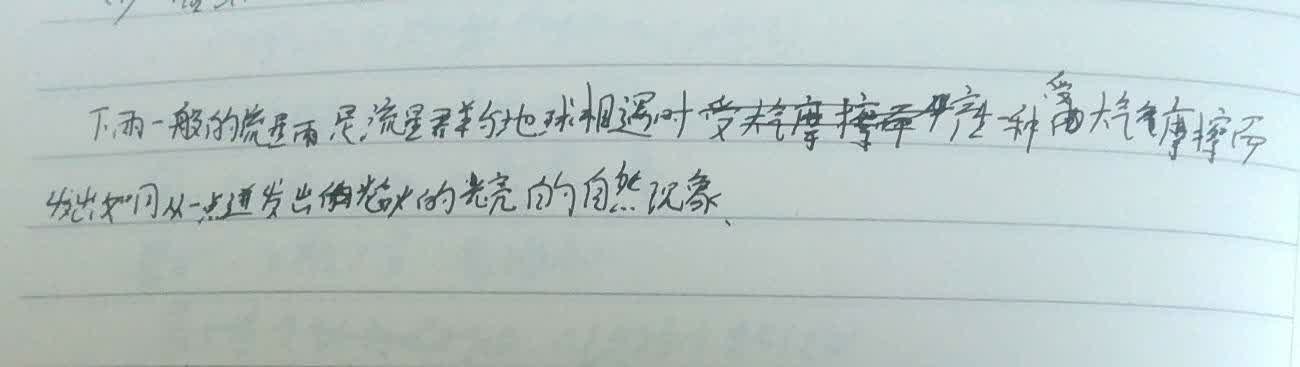 下雨一般的流星雨是流星群与地球相遇时受大气摩擦而产生一种受大气摩擦而
发出如同从一点迸发出焰火的光亮的自然现象、